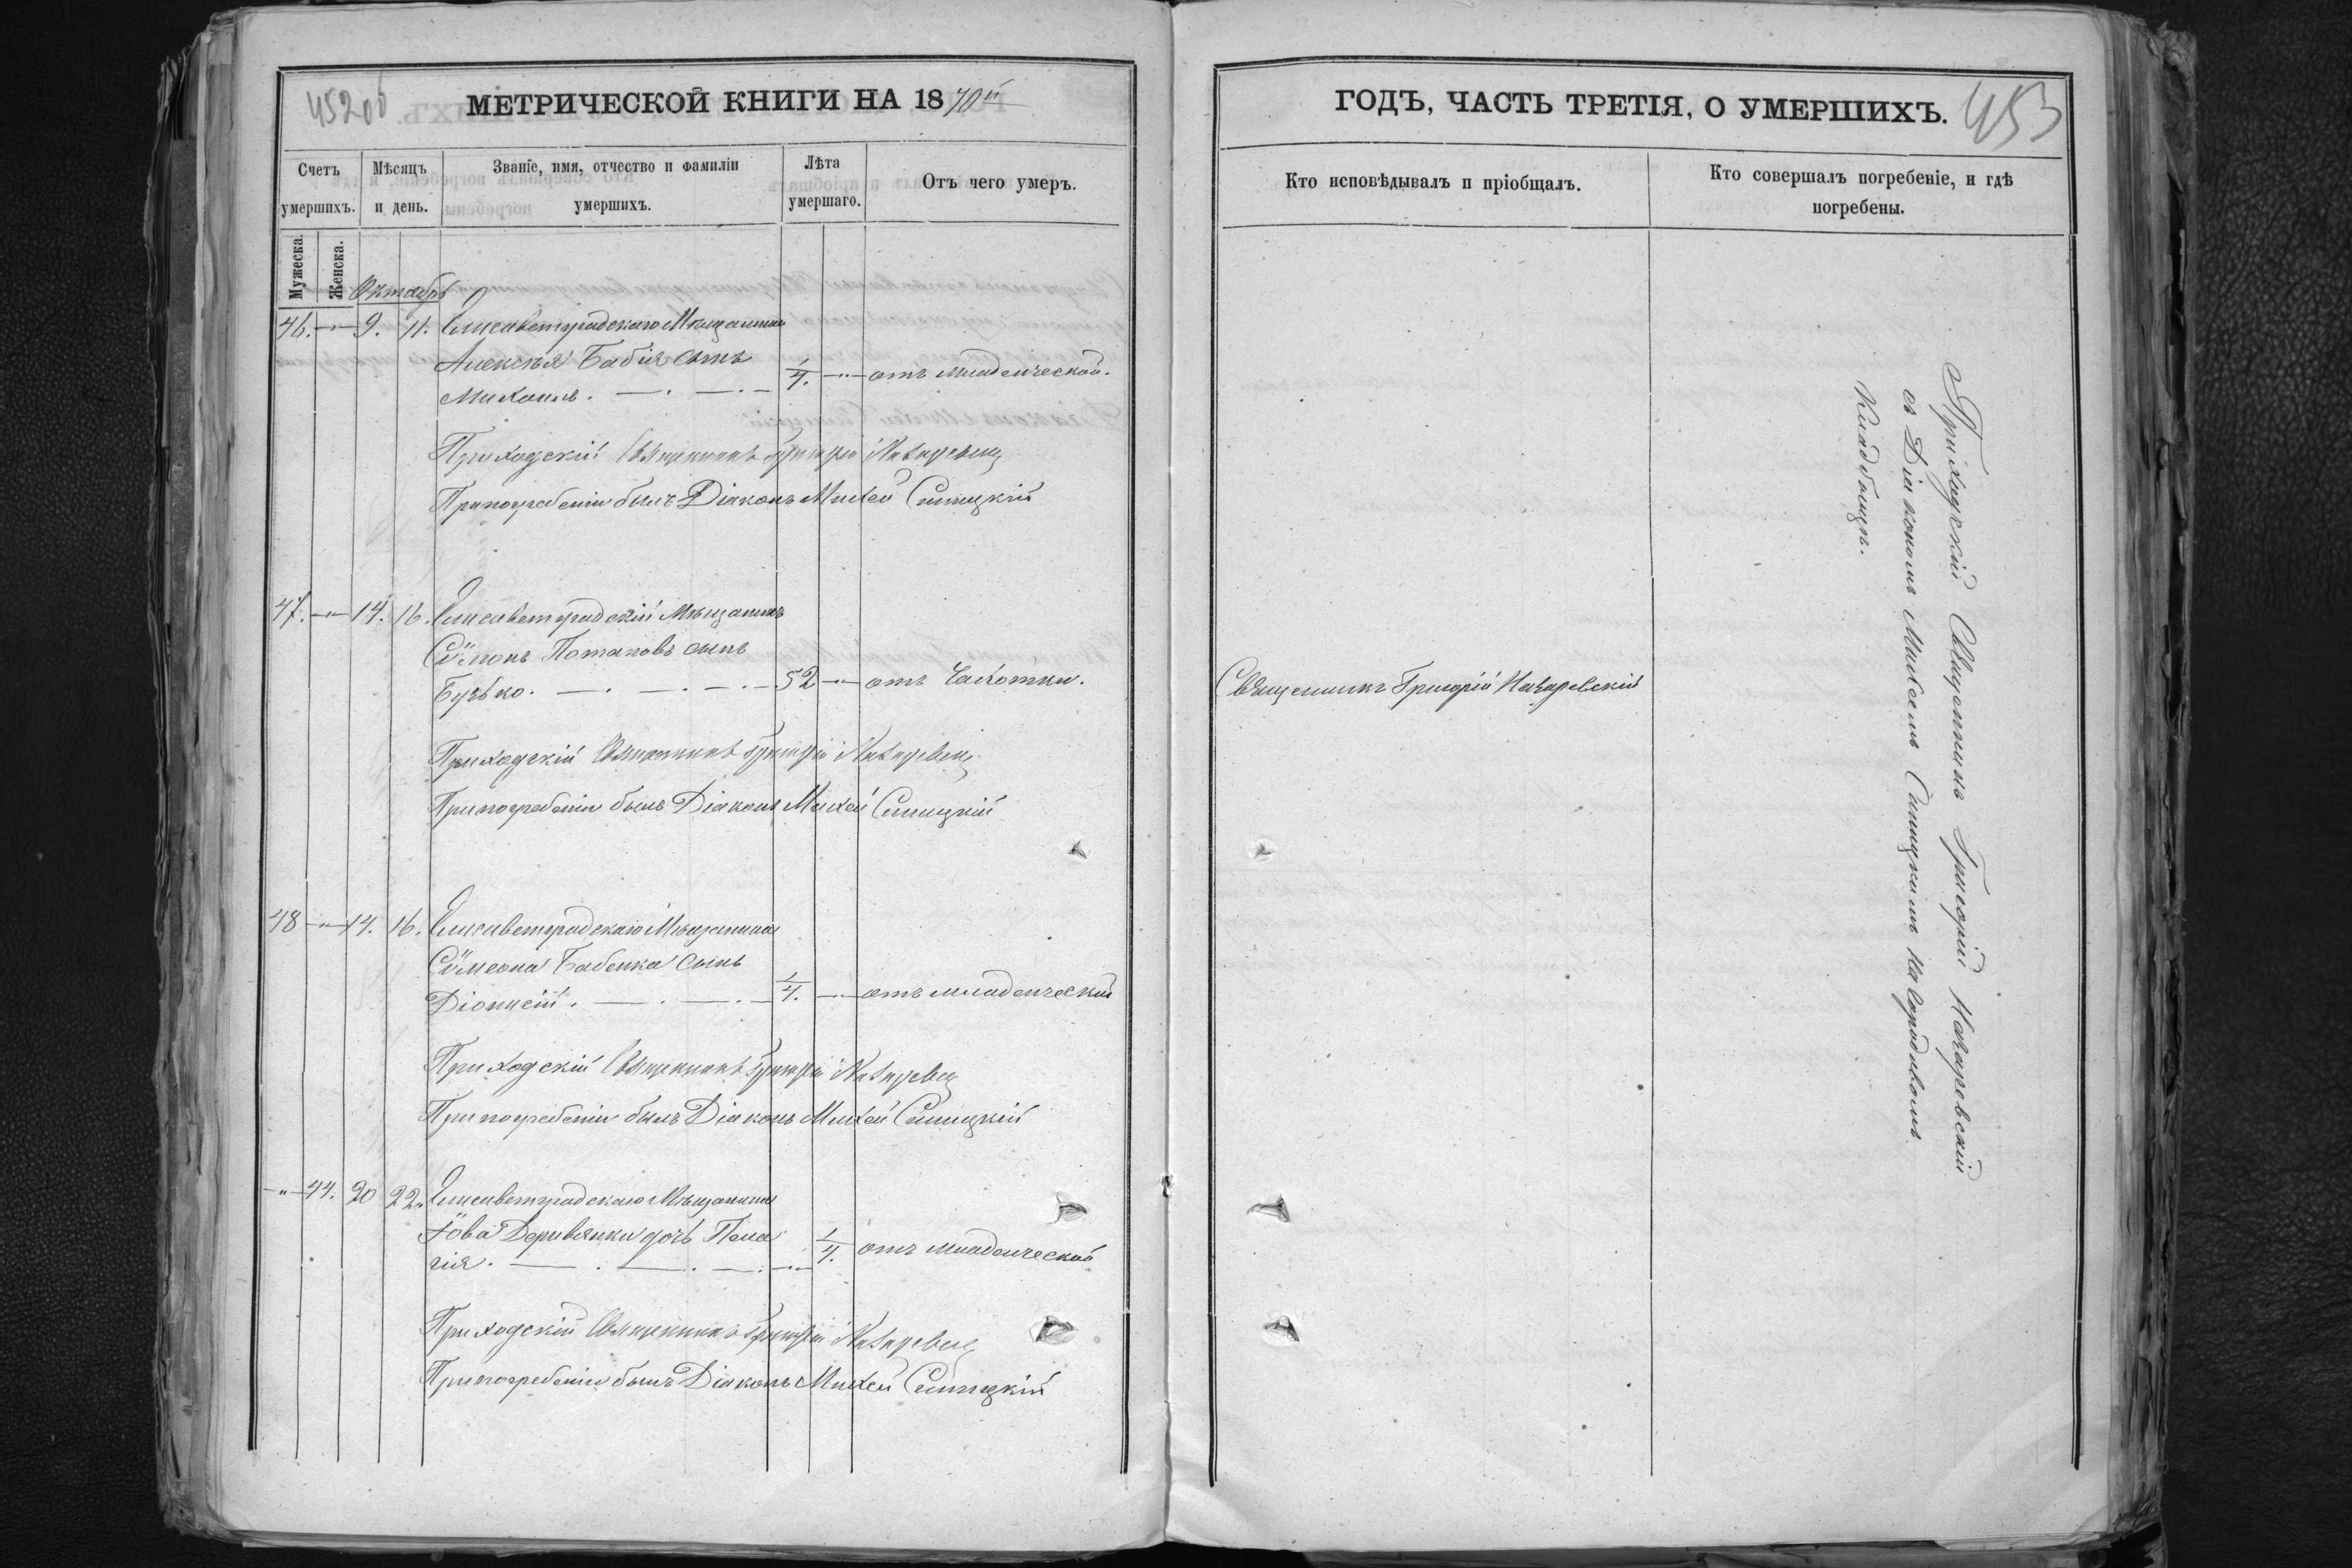 452об
МЕТРИЧЕСКОЙ КНИГИ НА 1870й
Счетъ умершихъ.
Мѣсяцъ и день.
Званіе, имя, отчество и фамиліи умершихъ.
Лѣта умершаго.
Отъ чего умеръ.
Мужеска.
Женска.
Октябрь
46. —"— 9. 11. Елисаветградскаго Мѣщанина
Алексѣя Бабія сынъ
Михаилъ. 1/4. —"— отъ младенческой.
Приходскій Священникъ Григорій Назаревскій
При погребеніи былъ Діаконъ Михей Синицкій
47. —"— 14. 16. Елисаветградскій Мѣщанинъ
Сѵмонъ Потаповъ сынъ
Бузько. 52 —"— отъ Чахотки.
Приходскій Священникъ Григорій Назаревскій
При погребеніи былъ Діаконъ Михей Синицкій
48 —"— 14. 16. Елисаветградскаго Мѣщанина
Сѵмеона Бабенка сынъ
Діонисій. 1/4. —"— отъ младенческой
Приходскій Священникъ Григорій Назаревскій
При погребеніи былъ Діаконъ Михей Синицкій
—"— 44. 20 22. Елисаветградскаго Мѣщанина
Іова Деривянки дочь Пела
гія. 1/4. отъ младенческой
Приходскій Священникъ Григорій Назаревскій
При погребеніи былъ Діаконъ Михей Синицкій
ГОДЪ, ЧАСТЬ ТРЕТІЯ, О УМЕРШИХЪ.
453
Кто исповѣдывалъ и пріобщалъ.
Кто совершалъ погребеніе, и гдѣ
погребены.
Священникъ Григорій Назаревскій
Приходскій Священникъ Григорій Назаревскій
съ Діакономъ Михеемъ Синицкимъ на Городовомъ
Кладбищѣ.